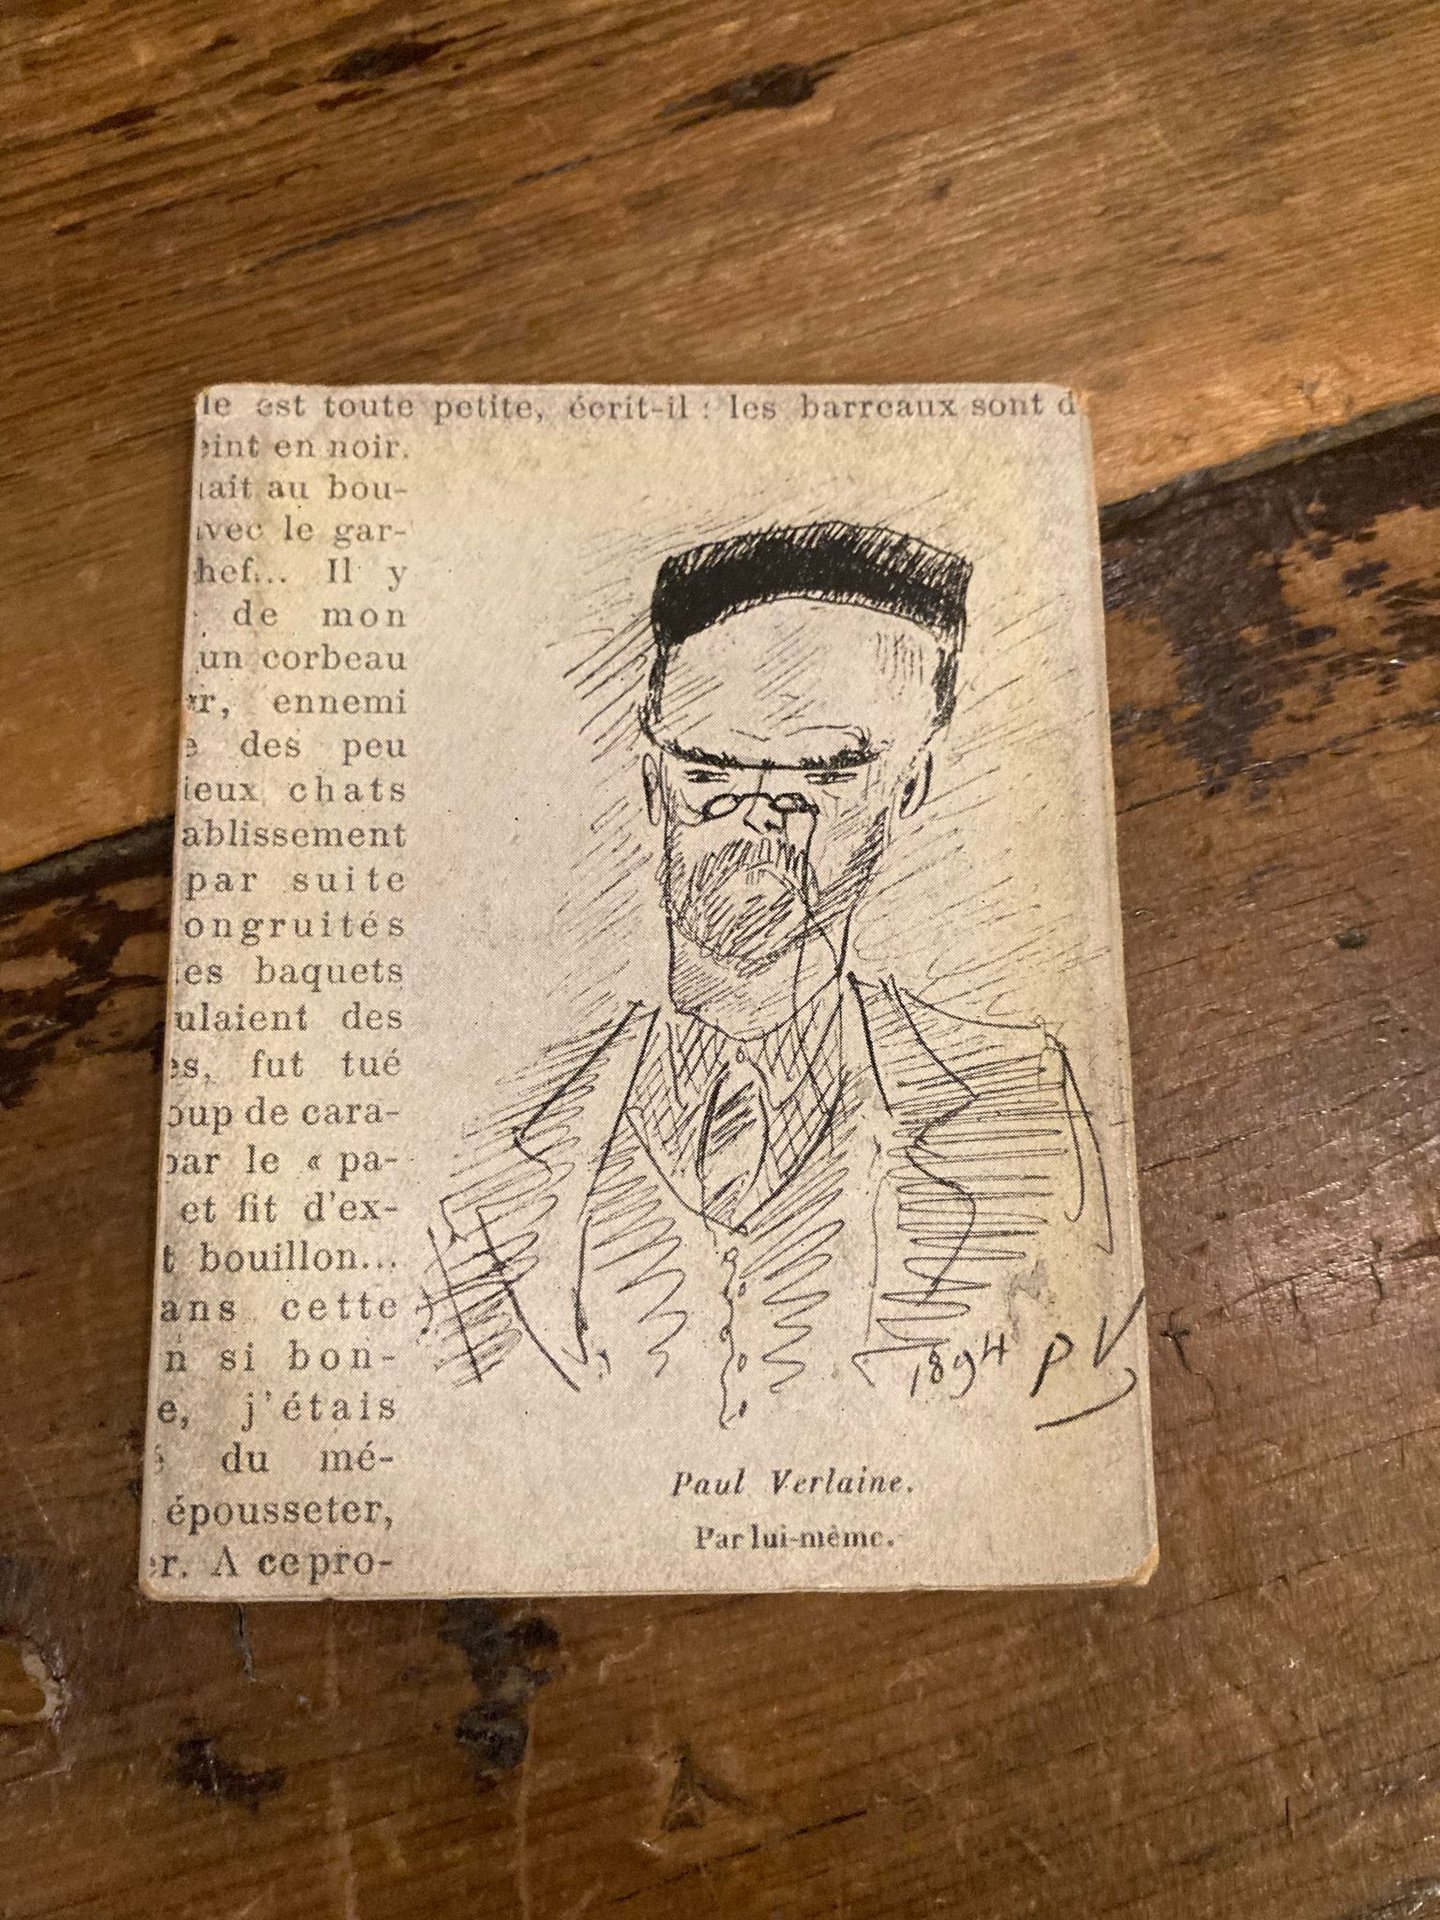 est toute petite, écrit-il : les barreaux sont d
eint en noir.
ait au bou-
avec le gar-
hef... Il y
de mon
un corbeau
r, ennemi
e des peu
ieux chats
ablissement
par suite
ongruités
es baquets
ulaient des
es, fut tué
oup de cara-
par le « pa-
et fit d'ex-
t bouillon...
ans cette
n si bon-
e, j'étais
du mé-
épousseter,
r. A ce pro-
1894 PV
Paul Verlaine.
Par lui-même.